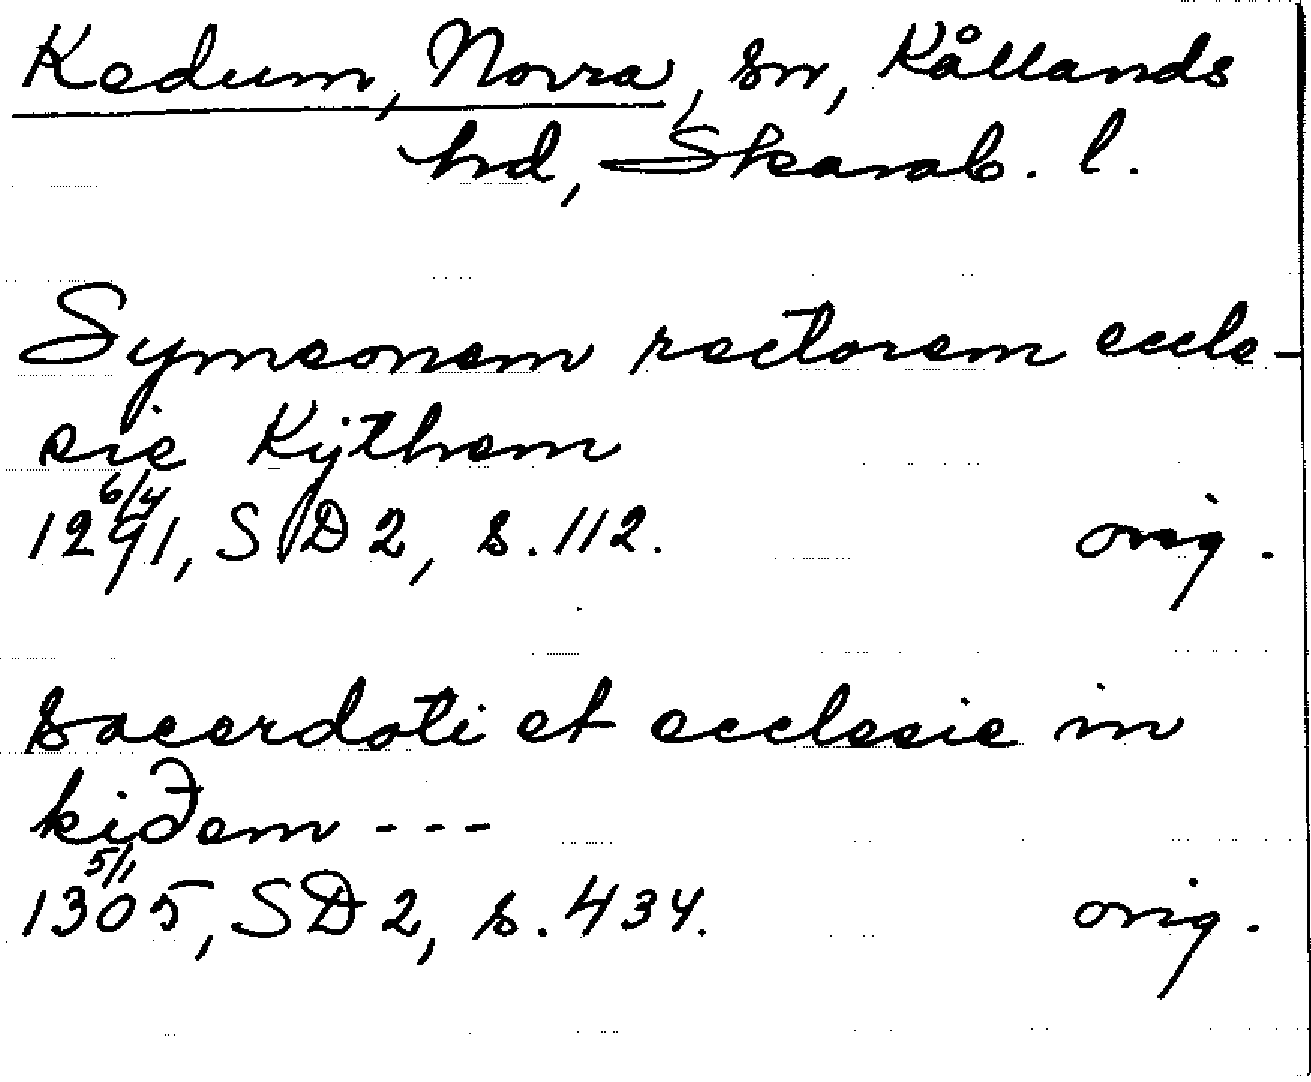 Kedum, Norra, sn, Kållands
hd, Skarab. l.
Symeonem rectorem eccle-
sie Kijthem
6/4
1291, SD 2, s. 112. orig.
sacerdoti et ecclesie in
kiðem ---
5/1
1305, SD 2, s. 434. orig.